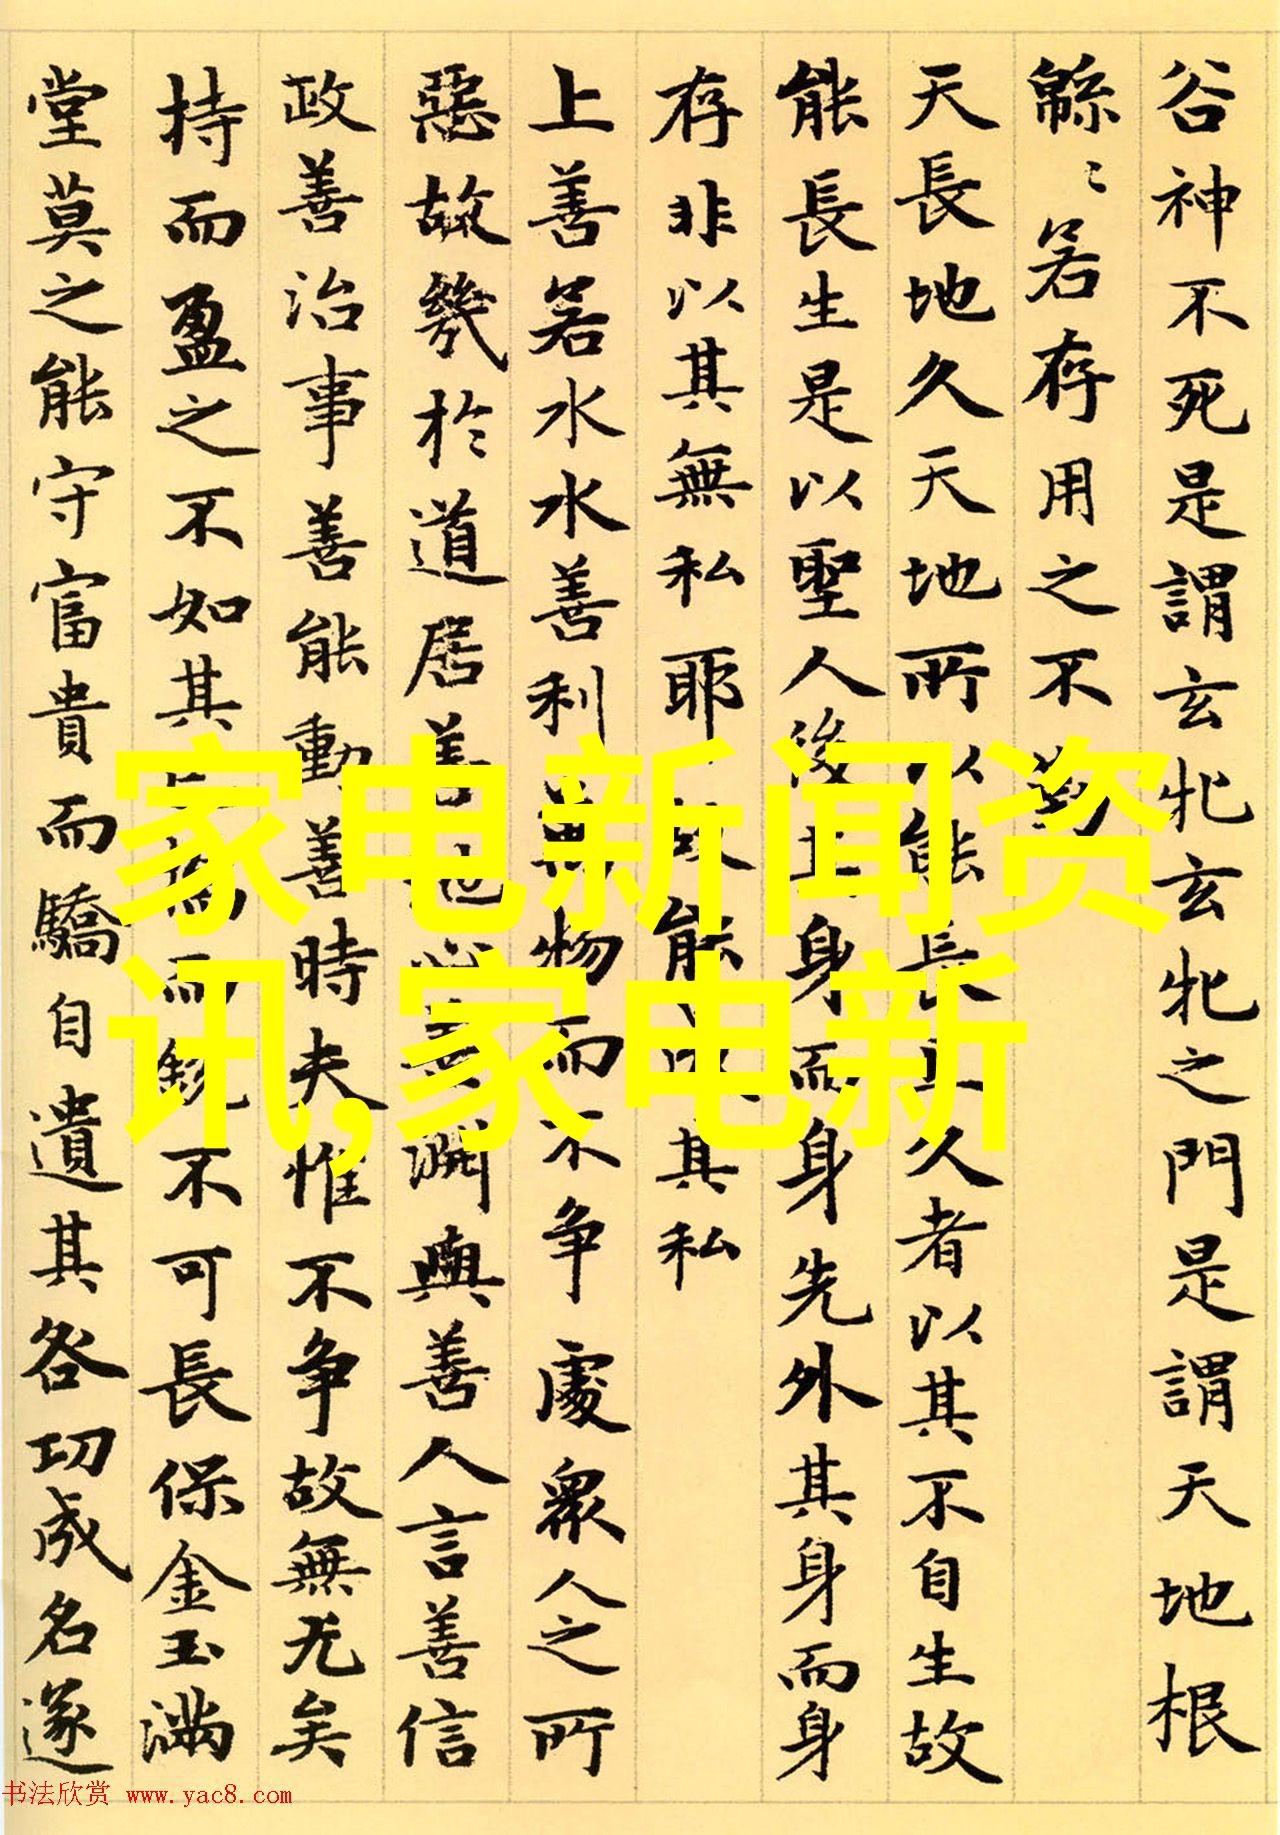 谷神不死是謂玄牝玄牝之門是謂天地根
緜〻若存用之不勤
天長地久天地所以能長且久者以其不自生故
能長生是以聖人後其身而身先外其身而身
存非以其無私耶故能成其私
上善若水水善利萬物而不争處衆人之所
惡故幾於道居善地心善渊與善人言善信
政善治事善能動善時夫惟不争故無尤矣
持而盈之不如其已揣而銳不可長保金玉滿
堂莫之能守富貴而驕自遺其咎功成名遂
家电新闻资
讯,家电新
书法欣赏 www.yac8.com